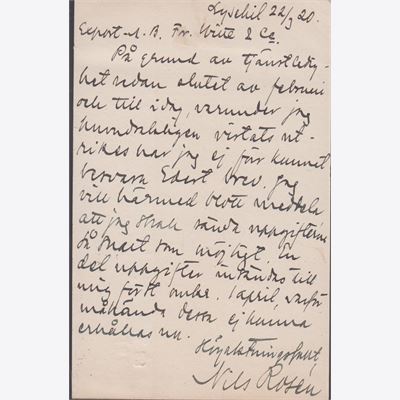 Lysekil 22/3 20.
Export-A.B. Fr. Witte & Co.
På grund av tjänstledig-
het sedan slutet av februari
och till idag, varunder jag
huvudsakligen vistats ut-
rikes har jag ej förr kunnat
besvara Edert brev. Jag
vill härmed blott meddela
att jag skall sända uppgifterna
så snart som möjligt. En
del uppgifter insändas till
mig först omkr. 1 april, varför
måhända dessa ej kunna
erhållas nu.
Högaktningsfullt,
Nils Rosén